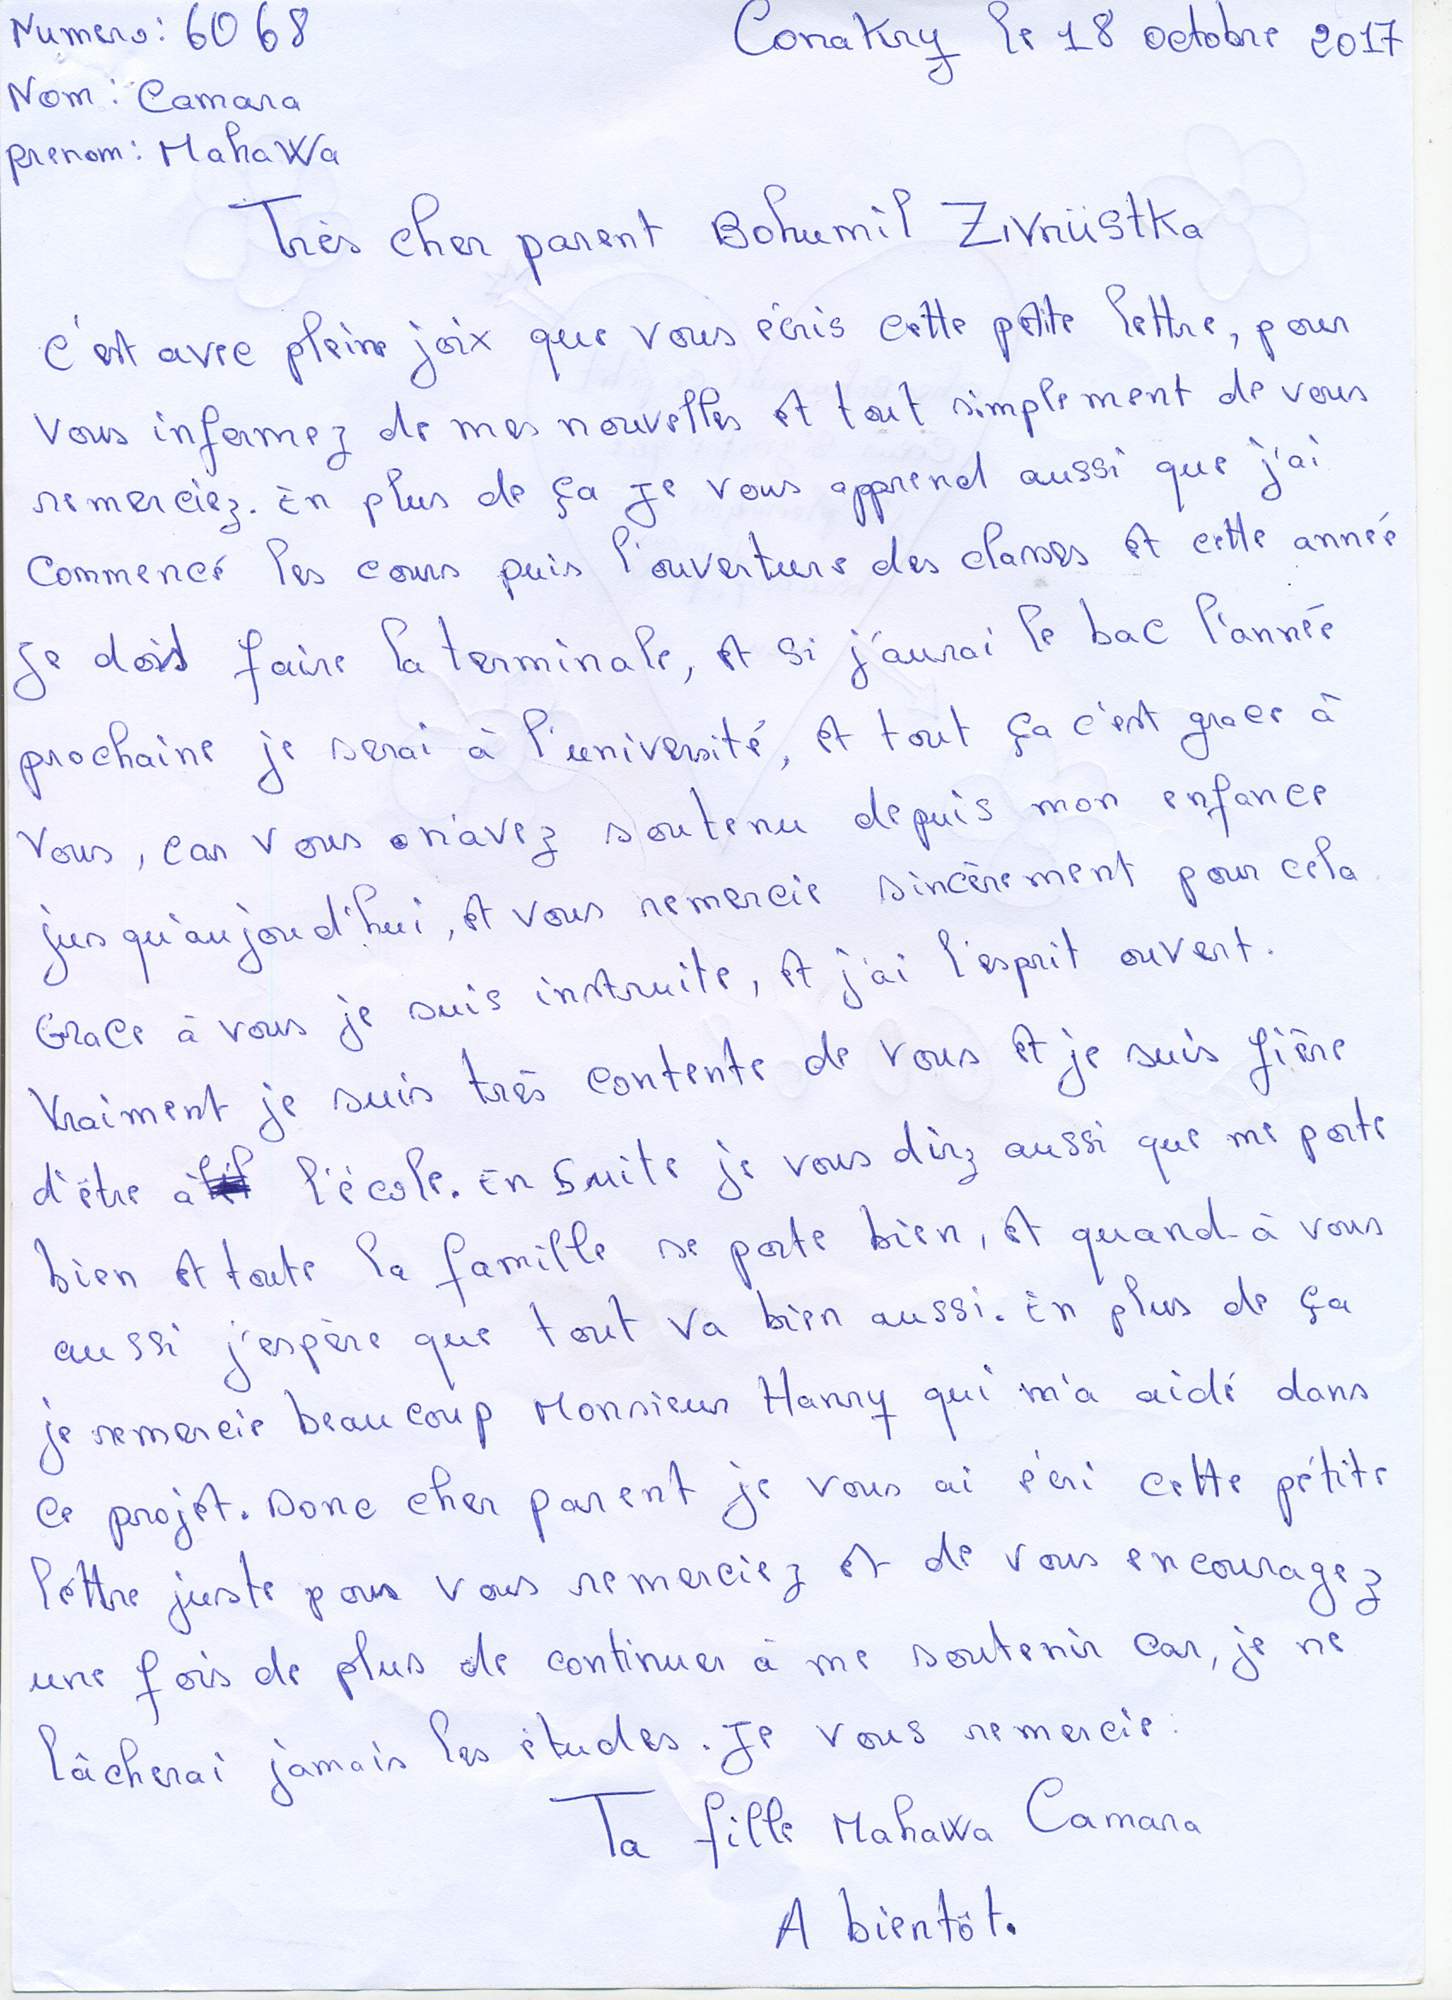 Numero: 6068
Conakry le 18 octobre 2017
Nom: Camara
prenom: Mahawa
Très cher parent Bohumil Zivrüstka
C'est avec pleine joix que vous écris cette petite lettre, pour
vous informez de mes nouvelles et tout simplement de vous
remerciez. En plus de ça je vous apprend aussi que j'ai
commencé les cours puis l'ouverture des classes et cette année
je dois faire la terminale, et si j'aurai le bac l'année
prochaine je serai à l'université, et tout ça c'est grace à
vous, car vous m'avez soutenu depuis mon enfance
jusqu'aujoud'hui, et vous remercie sincèrement pour cela.
Grace à vous je suis instruite, et j'ai l'esprit ouvert.
Vraiment je suis très contente de vous et je suis fière
d'être à l'école. En suite je vous dirz aussi que me porte
bien et toute la famille se porte bien, et quand-à vous
aussi j'espère que tout va bien aussi. En plus de ça
je remercie beaucoup Monsieur Harry qui m'a aidé dans
ce projet. Donc cher parent je vous ai écri cette pétite
léttre juste pour vous remerciez et de vous encouragez
une fois de plus de continuer à me soutenir car, je ne
lâcherai jamais les études. Je vous remercie.
Ta fille Mahawa Camara
A bientôt.